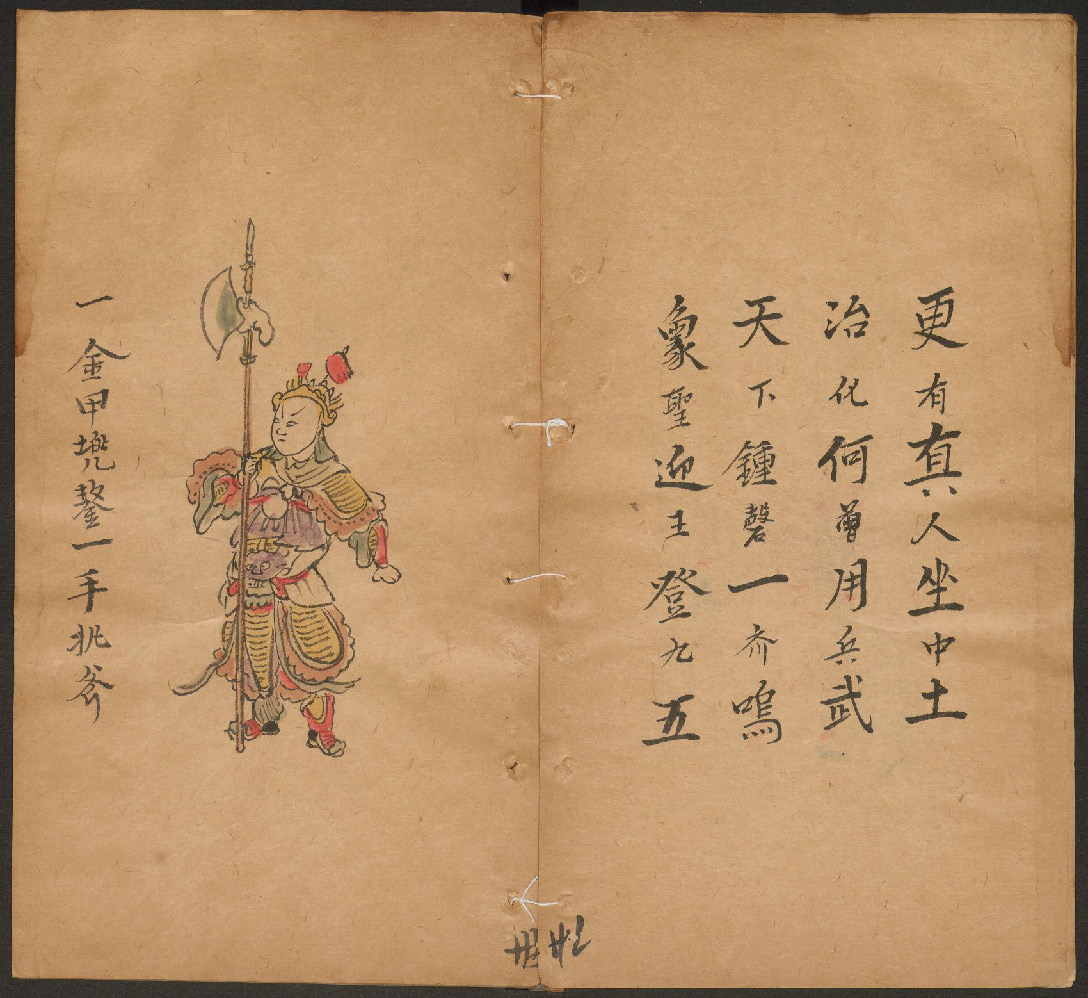 更有真人坐中土
治化何曾用兵武
天下鍾磬一齐鳴
象聖迎王登九五
一金甲堍鍪一手執斧